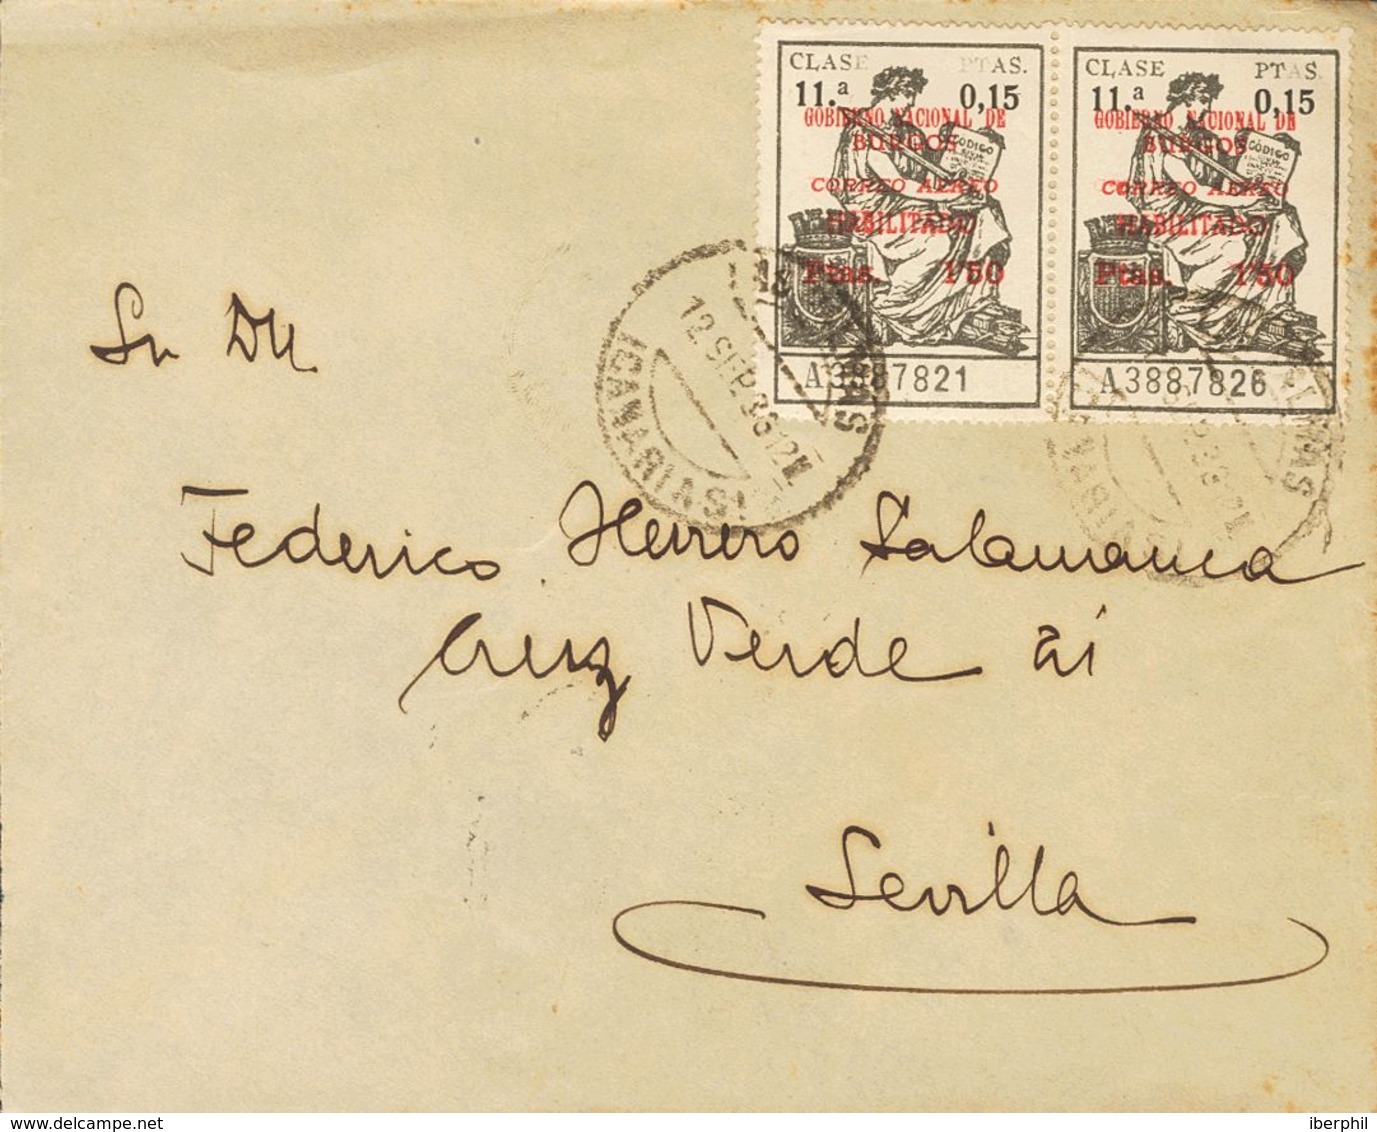 CLASE PTAS.
11.ª 0,15
GOBIERNO NACIONAL DE
BURGOS
CORREO AEREO
HABILITADO
Ptas. 1'50
CÓDIGO
A3887821
CLASE PTAS.
11.ª 0,15
GOBIERNO NACIONAL DE
BURGOS
CORREO AEREO
HABILITADO
Ptas. 1'50
CÓDIGO
A3887826
LAS PALMAS
12 SEP 36 12M
(CANARIAS)
Sr Dn
Federico Herrero Salamanca
Cruz Verde 21
Sevilla
delcampe.net
iberphil